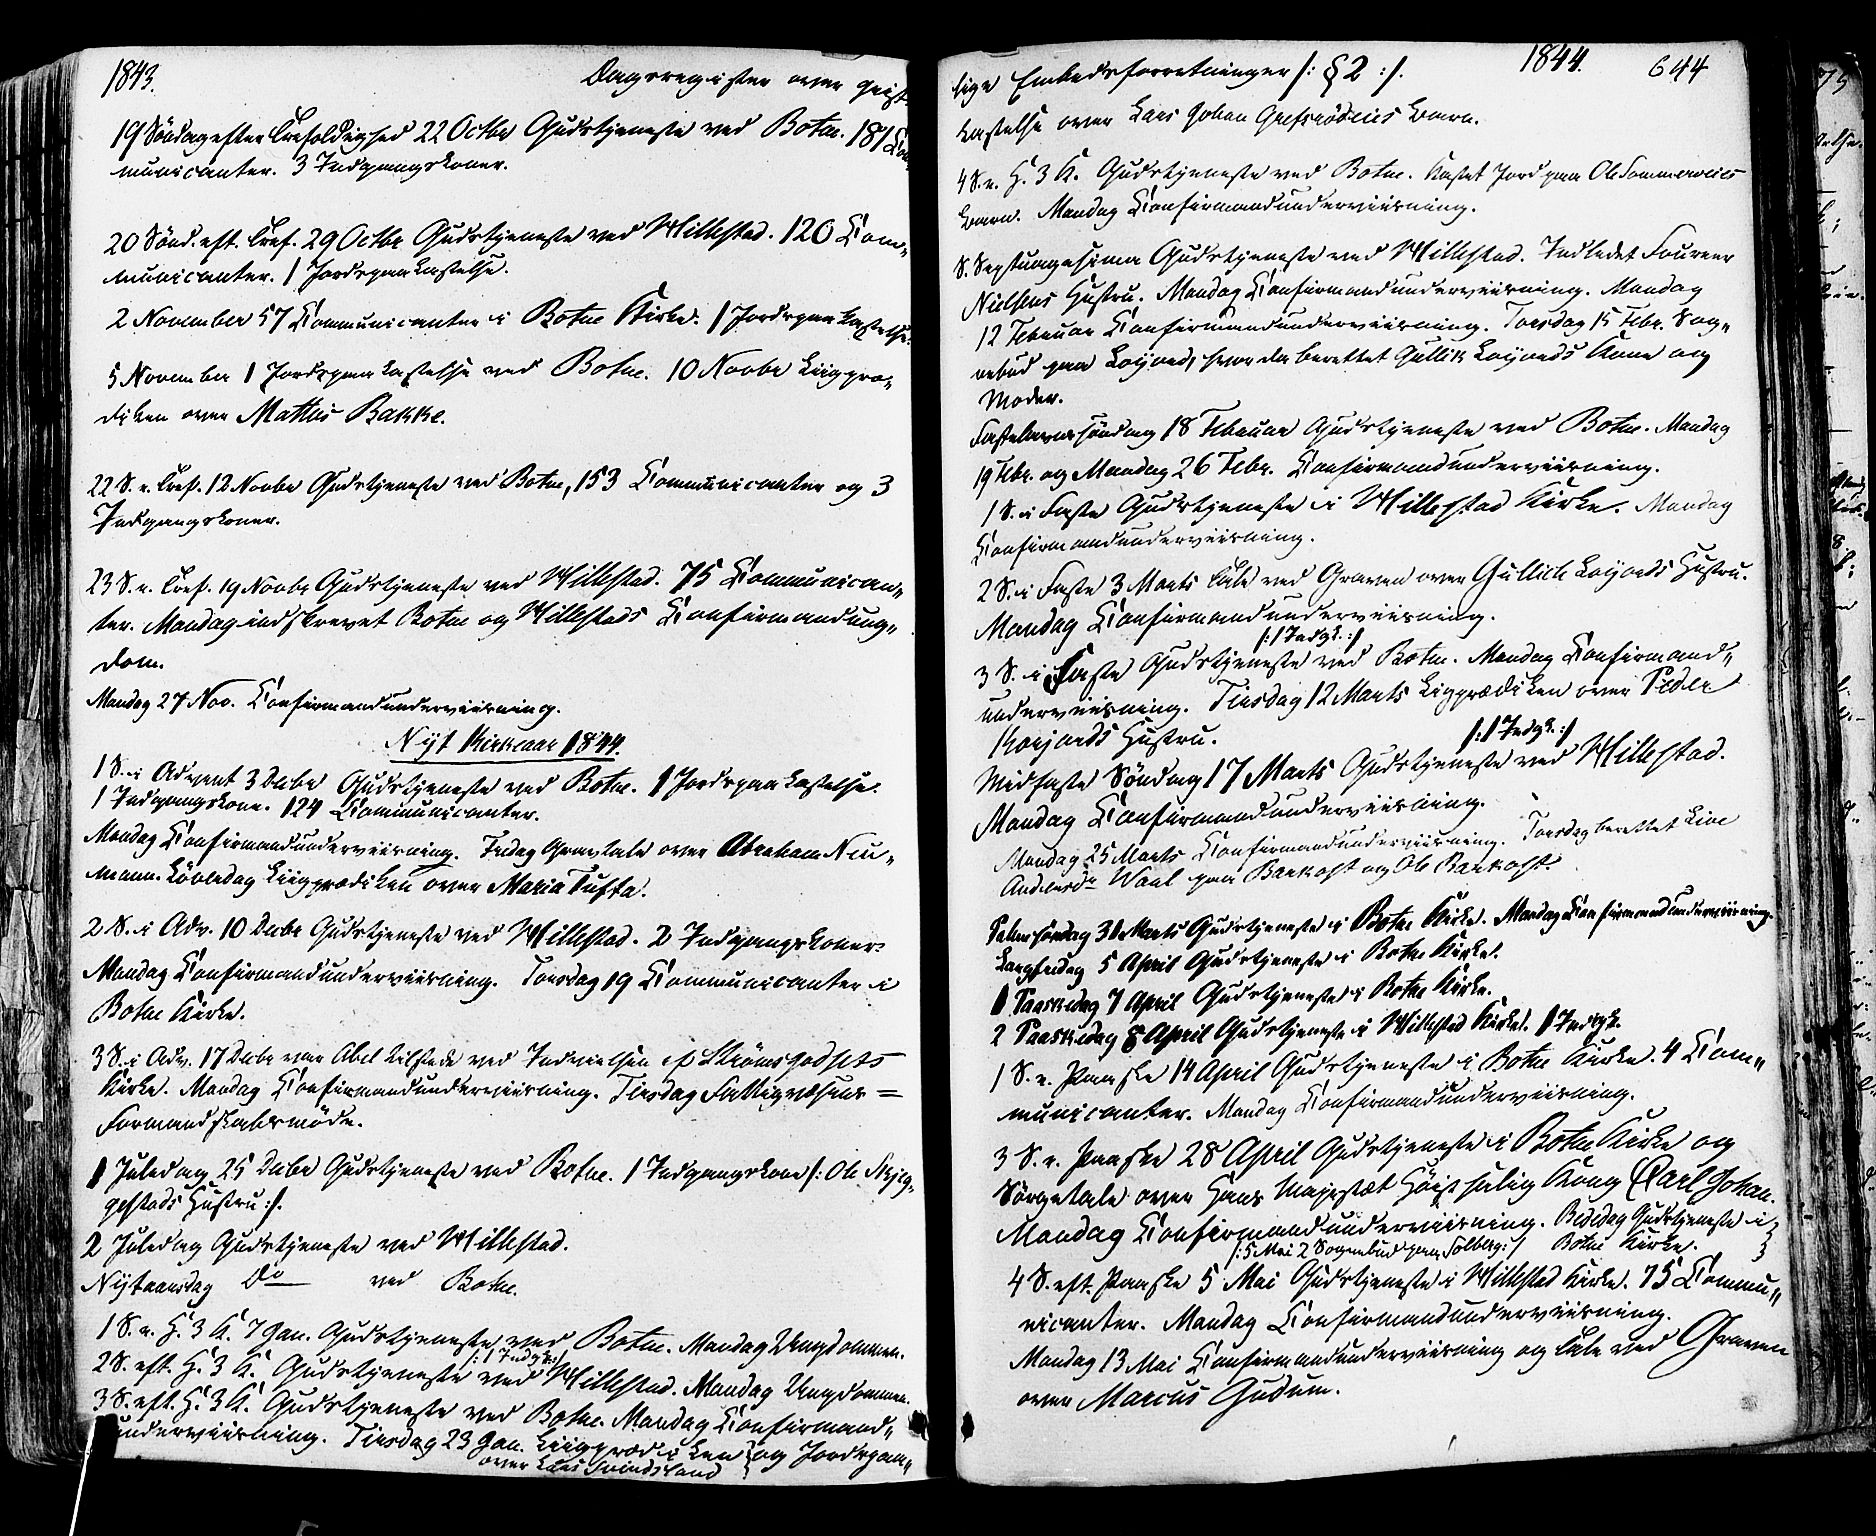 1843.
Dagsregister over geist-
19 Söndag efter Trefoldighed 22 Octbr Gudstjeneste ved Botne. 181 Com
municanter. 3 Indgangskoner.
20 Sönd. eft. Tref. 29 Octbr Gudstjeneste ved Hillestad. 120 Com„
municanter. 1 Jordspaakastelse.
2 November 57 Communicanter i Botne Kirke. 1 Jordspaakastelse.
5 November 1 Jordspaakastelse ved Botne. 10 Novbr Liigpræ„
diken over Mathis Bakke.
22 S. e. Tref. 12 Novbr Gudstjeneste ved Botne, 153 Communicanter og 3
Indgangskoner.
23 S. e. Tref. 19 Novbr Gudstjeneste ved Hillestad. 75 Communican„
ter. Mandag indskrevet Botne og Hillestads Confirmandung„
dom.
Mandag 27 Nov. Confirmandunderviisning.
Nyt Kirkeaar 1844.
1 S. i Advent 3 Decbr Gudstjeneste ved Botne. 1 Jordspaakastelse.
1 Indgangskone. 124 Communicanter.
Mandag Confirmandunderviisning. Fredag Gravtale over Abraham Neu„
mann. Löverdag Liigprædiken over Maria Tufte.
2 S. i Adv. 10 Decbr Gudstjeneste ved Hillestad. 2 Indgangskoner.
Mandag Confirmandunderviisning. Torsdag 19 Communicanter i
Botne Kirke.
3 S. i Adv. 17 Decbr var Abel tilstede ved Indvielsen af Strömsgodsets
Kirke. Mandag Confirmandunderviisning. Tirsdag Fattigvæsens=
Formandskabsmöde.
1 Juledag 25 Decbr Gudstjeneste ved Botne. 1 Indgangskone /: Ole Skjeg„
gestads Hustru :/.
2 Juledag Gudstjeneste ved Hillestad.
Nytaarsdag Do ved Botne.
1 S. e. H. 3 K. 7 Jan. Gudstjeneste ved Botne. Mandag Ungdommen.
/: 1 Indgk :/
2 S. eft. H. 3 K. Gudstjeneste ved Hillestad. Mandag Ungdommen.
3 S. eft. H. 3 K. Gudstjeneste ved Botne. Mandag Confirmand„
underviisning. Tirsdag 23 Jan. Liigprædiken og Jordspaa„
over Lars
1844.
644
lige Embedsforretninger /: § 2 :/.
kastelse over Lars Johan Grefsrödeies Barn.
4 S. e. H. 3 K. Gudstjeneste ved Botne. Kastet Jord paa Ole Sommereies
Barn. Mandag Confirmandunderviisning.
S. Septuagesima Gudstjeneste ved Hillestad. Indledet Foureer
Nielsens Hustru. Mandag Confirmandunderviisning. Mandag
12 Februar Confirmandunderviisning. Torsdag 15 Febr. Sog„
nebud paa Löijord, hvor da berettet Gullik Löijords Kone og
Moder.
Fastelavnssöndag 18 Februar Gudstjeneste ved Botne. Mandag
19 Febr. og Mandag 26 Febr. Confirmandunderviisning.
1 S. i Faste Gudstjeneste i Hillestad Kirke. Mandag
Confirmandunderviisning.
2 S. i Faste 3 Marts Tale ved Graven over Gullich Löijords Hustru.
Mandag Confirmandunderviisning.
/: 1 Indgk. :/
3 S. i Faste Gudstjeneste ved Botne. Mandag Confirmand„
underviisning. Tirsdag 12 Marts Ligprædiken over Peder
Hustru.
/: 1 Indgk. :/
Midfaste Söndag 17 Marts Gudstjeneste ved Hillestad.
Mandag Confirmandunderviisning.
Mandag 25 Marts Confirmandunderviisning. Torsdag berettet Live
Andersdr Waal paa Backast og Ole Backast.
Palmesöndag 31 Marts Gudstjeneste i Botne Kirke. Mandag Confirmandunderviisning.
Langfredag 5 April Gudstjeneste i Botne Kirke.
1 Paaskedag 7 April Gudstjeneste i Botne Kirke.
2 Paaskedag 8 April Gudstjeneste i Hillestad Kirke. 1 Indgk.
1 S. e. Paaske 14 April Gudstjeneste i Botne Kirke. 4 Com„
municanter. Mandag Confirmandunderviisning.
3 S. e. Paaske 28 April Gudstjeneste i Botne Kirke og
Sörgetale over Hans Majestæt Höist salig Kong Carl Johan.
Mandag Confirmandunderviisning. Bededag Gudstjeneste i
Botne Kirke.
/: 5 Mai 2 Sognebud paa Solberg :/
4 S. eft. Paaske 5 Mai Gudstjeneste i Hillestad Kirke. 75 Commu„
nicanter. Mandag Confirmandunderviisning.
Mandag 13 Mai Confirmandunderviisning og Tale ved Graven
over Marcus Gudum.